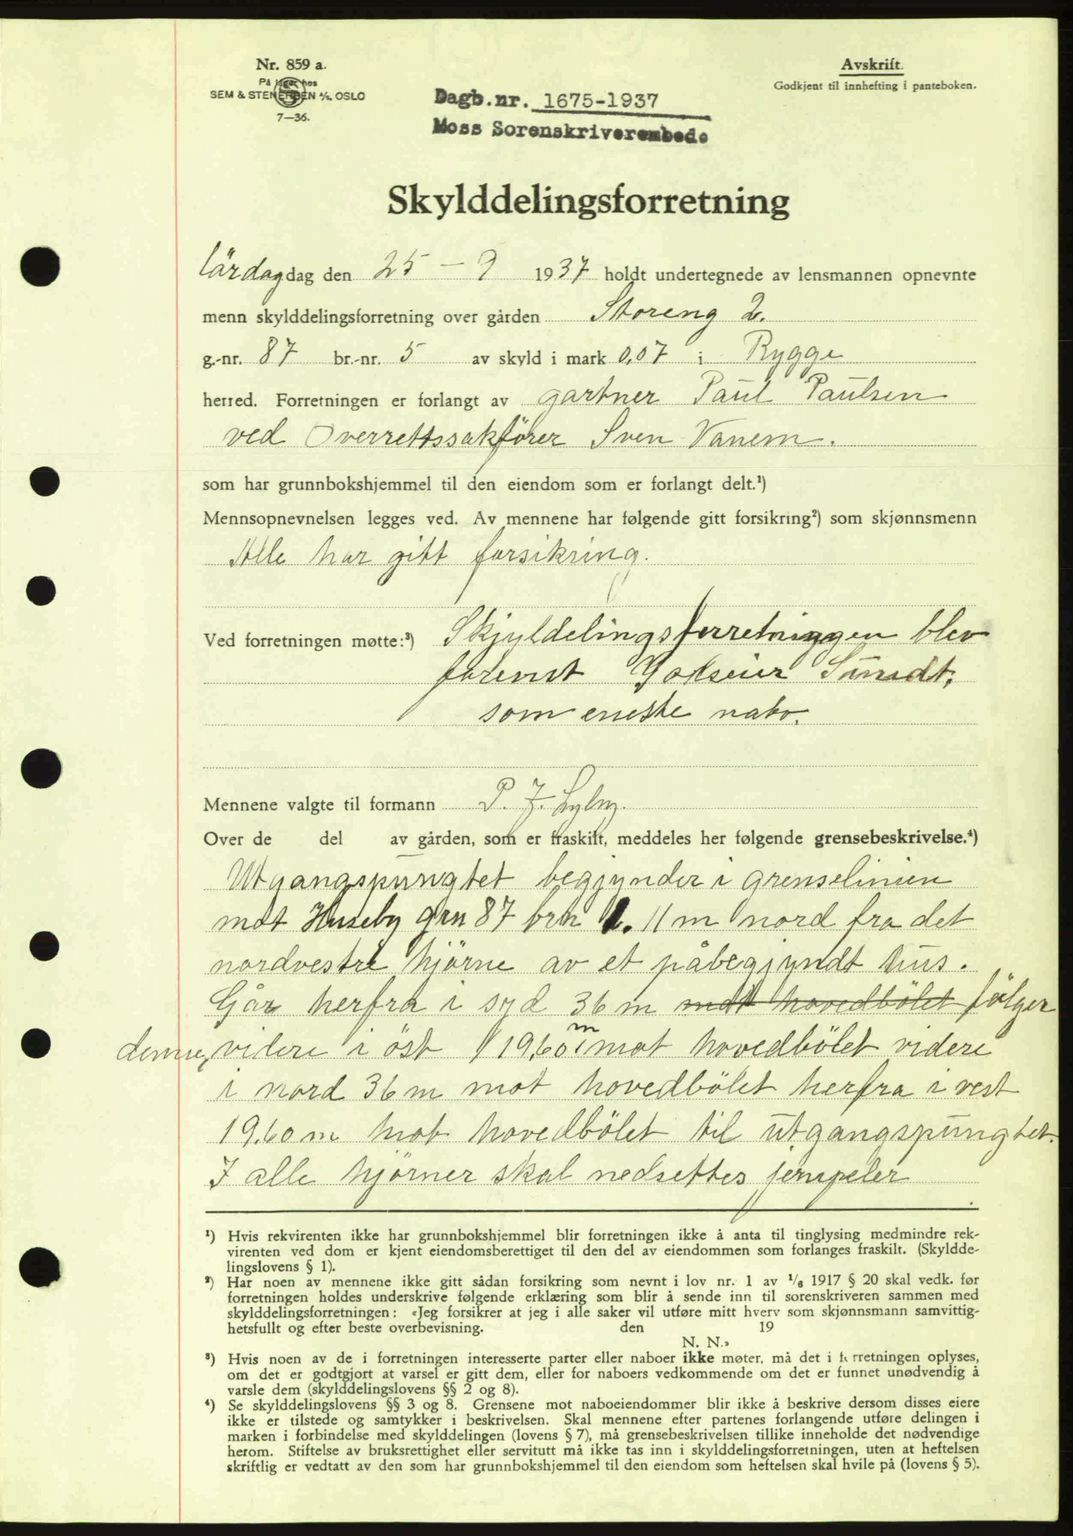 Nr. 859 a.
På lager hos
SEM & STENERSEN A/S. OSLO
7—36.
Avskrift.
Godkjent til innhefting i panteboken.
Dagb.nr. 1675-1937
Moss Sorenskriverembede
Skylddelingsforretning
lørdag dag den 25 - 9 1937 holdt undertegnede av lensmannen opnevnte
menn skylddelingsforretning over gården Storeng 2.
g.-nr. 87 br.-nr. 5 av skyld i mark 0,07 i Rygge
herred. Forretningen er forlangt av gartner Paul Paulsen
ved Overrettssakfører Sven Vanem.
som har grunnbokshjemmel til den eiendom som er forlangt delt.¹)
Mennsopnevnelsen legges ved. Av mennene har følgende gitt forsikring²) som skjønnsmenn
Alle har gitt forsikring.
Ved forretningen møtte:³) Skjyldelingsforretningen blev
forevist Godseier Sundt,
som eneste nabo.
Mennene valgte til formann P. J. Lyby.
Over de del av gården, som er fraskilt, meddeles her følgende grensebeskrivelse.⁴)
Utgangspungtet begjynder i grenselinien
mot Huseby grn 87 brn 1. 11 m nord fra det
nordvestre hjørne av et påbegjyndt hus.
Går herfra i syd 36 m mot hovedbølet følger
denne, videre i øst 19,60 m mot hovedbølet videre
i nord 36 m mot hovedbølet herfra i vest
19,60 m mot hovedbølet til utgangspungtet.
I alle hjørner skal nedsettes jernpeler
¹) Hvis rekvirenten ikke har grunnbokshjemmel blir forretningen ikke å anta til tinglysing medmindre rek-
virenten ved dom er kjent eiendomsberettiget til den del av eiendommen som forlanges fraskilt. (Skyldde-
lingslovens § 1).
²) Har noen av mennene ikke gitt sådan forsikring som nevnt i lov nr. 1 av 1/6 1917 § 20 skal vedk. før
forretningen holdes underskrive følgende erklæring som blir å sende inn til sorenskriveren sammen med
skylddelingsforretningen: «Jeg forsikrer at jeg i alle saker vil utføre mitt hverv som skjønnsmann samvittig-
hetsfullt og efter beste overbevisning. den 19
N. N.»
³) Hvis noen av de i forretningen interesserte parter eller naboer ikke møter, må det i forretningen oplyses,
om det er godtgjort at varsel er gitt dem, eller for naboers vedkommende om det er funnet unødvendig å
varsle dem (skylddelingslovens §§ 2 og 8).
⁴) Se skylddelingslovens §§ 3 og 8. Grensene mot naboeiendommer blir ikke å beskrive dersom disses eiere
ikke er tilstede og samtykker i beskrivelsen. Skal mennene efter partenes forlangende utføre delingen i
marken i forbindelse med skylddelingen (lovens § 7), må grensebeskrivelsen tillike inneholde det nødvendige
herom. Stiftelse av bruksrettighet eller servitutt må ikke tas inn i skylddelingsforretningen, uten at heftelsen
skriftlig er vedtatt av den som har grunnbokshjemmel til den eiendom som heftelsen skal hvile på (lovens § 5).